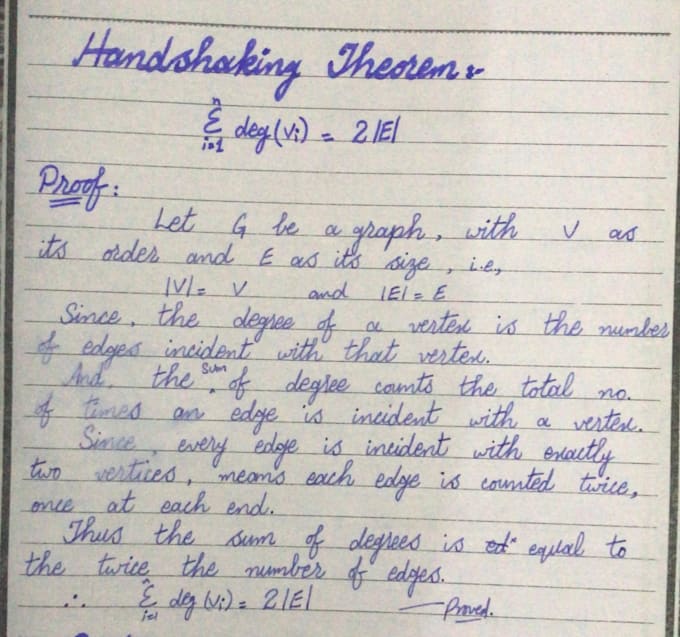 Handshaking Theorem:-
n
Σ deg(vi) = 2|E|
i=1
Proof:
Let G be a graph, with V as
its order and E as its size, i.e.,
|V| = V and |E| = E
Since, the degree of a vertex is the number
of edges incident with that vertex.
And, the sum of degree counts the total no.
of times an edge is incident with a vertex.
Since, every edge is incident with exactly
two vertices, means each edge is counted twice,
once at each end.
Thus the sum of degrees is equal to
the twice the number of edges.
n
∴ Σ deg(vi) = 2|E| —Proved.
i=1